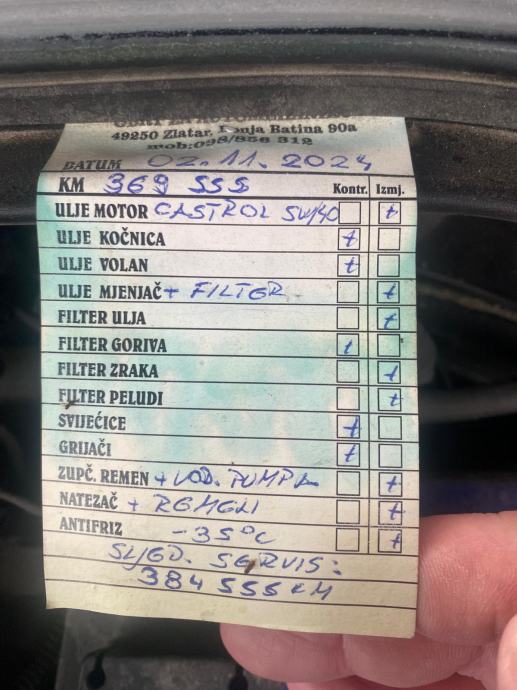 49250 Zlatar, Donja Batina 90a
mob:098/856 312
DATUM 02.11.2024
KM 369 555 Kontr. Izmj.
ULJE MOTOR CASTROL 5W/40 +
ULJE KOČNICA +
ULJE VOLAN +
ULJE MJENJAČ + FILTER +
FILTER ULJA +
FILTER GORIVA +
FILTER ZRAKA +
FILTER PELUDI +
SVIJEĆICE +
GRIJAČI +
ZUPČ. REMEN + VOD. PUMPA +
NATEZAČ + REMENI +
ANTIFRIZ -35°C +
SLJED. SERVIS:
384 555 KM